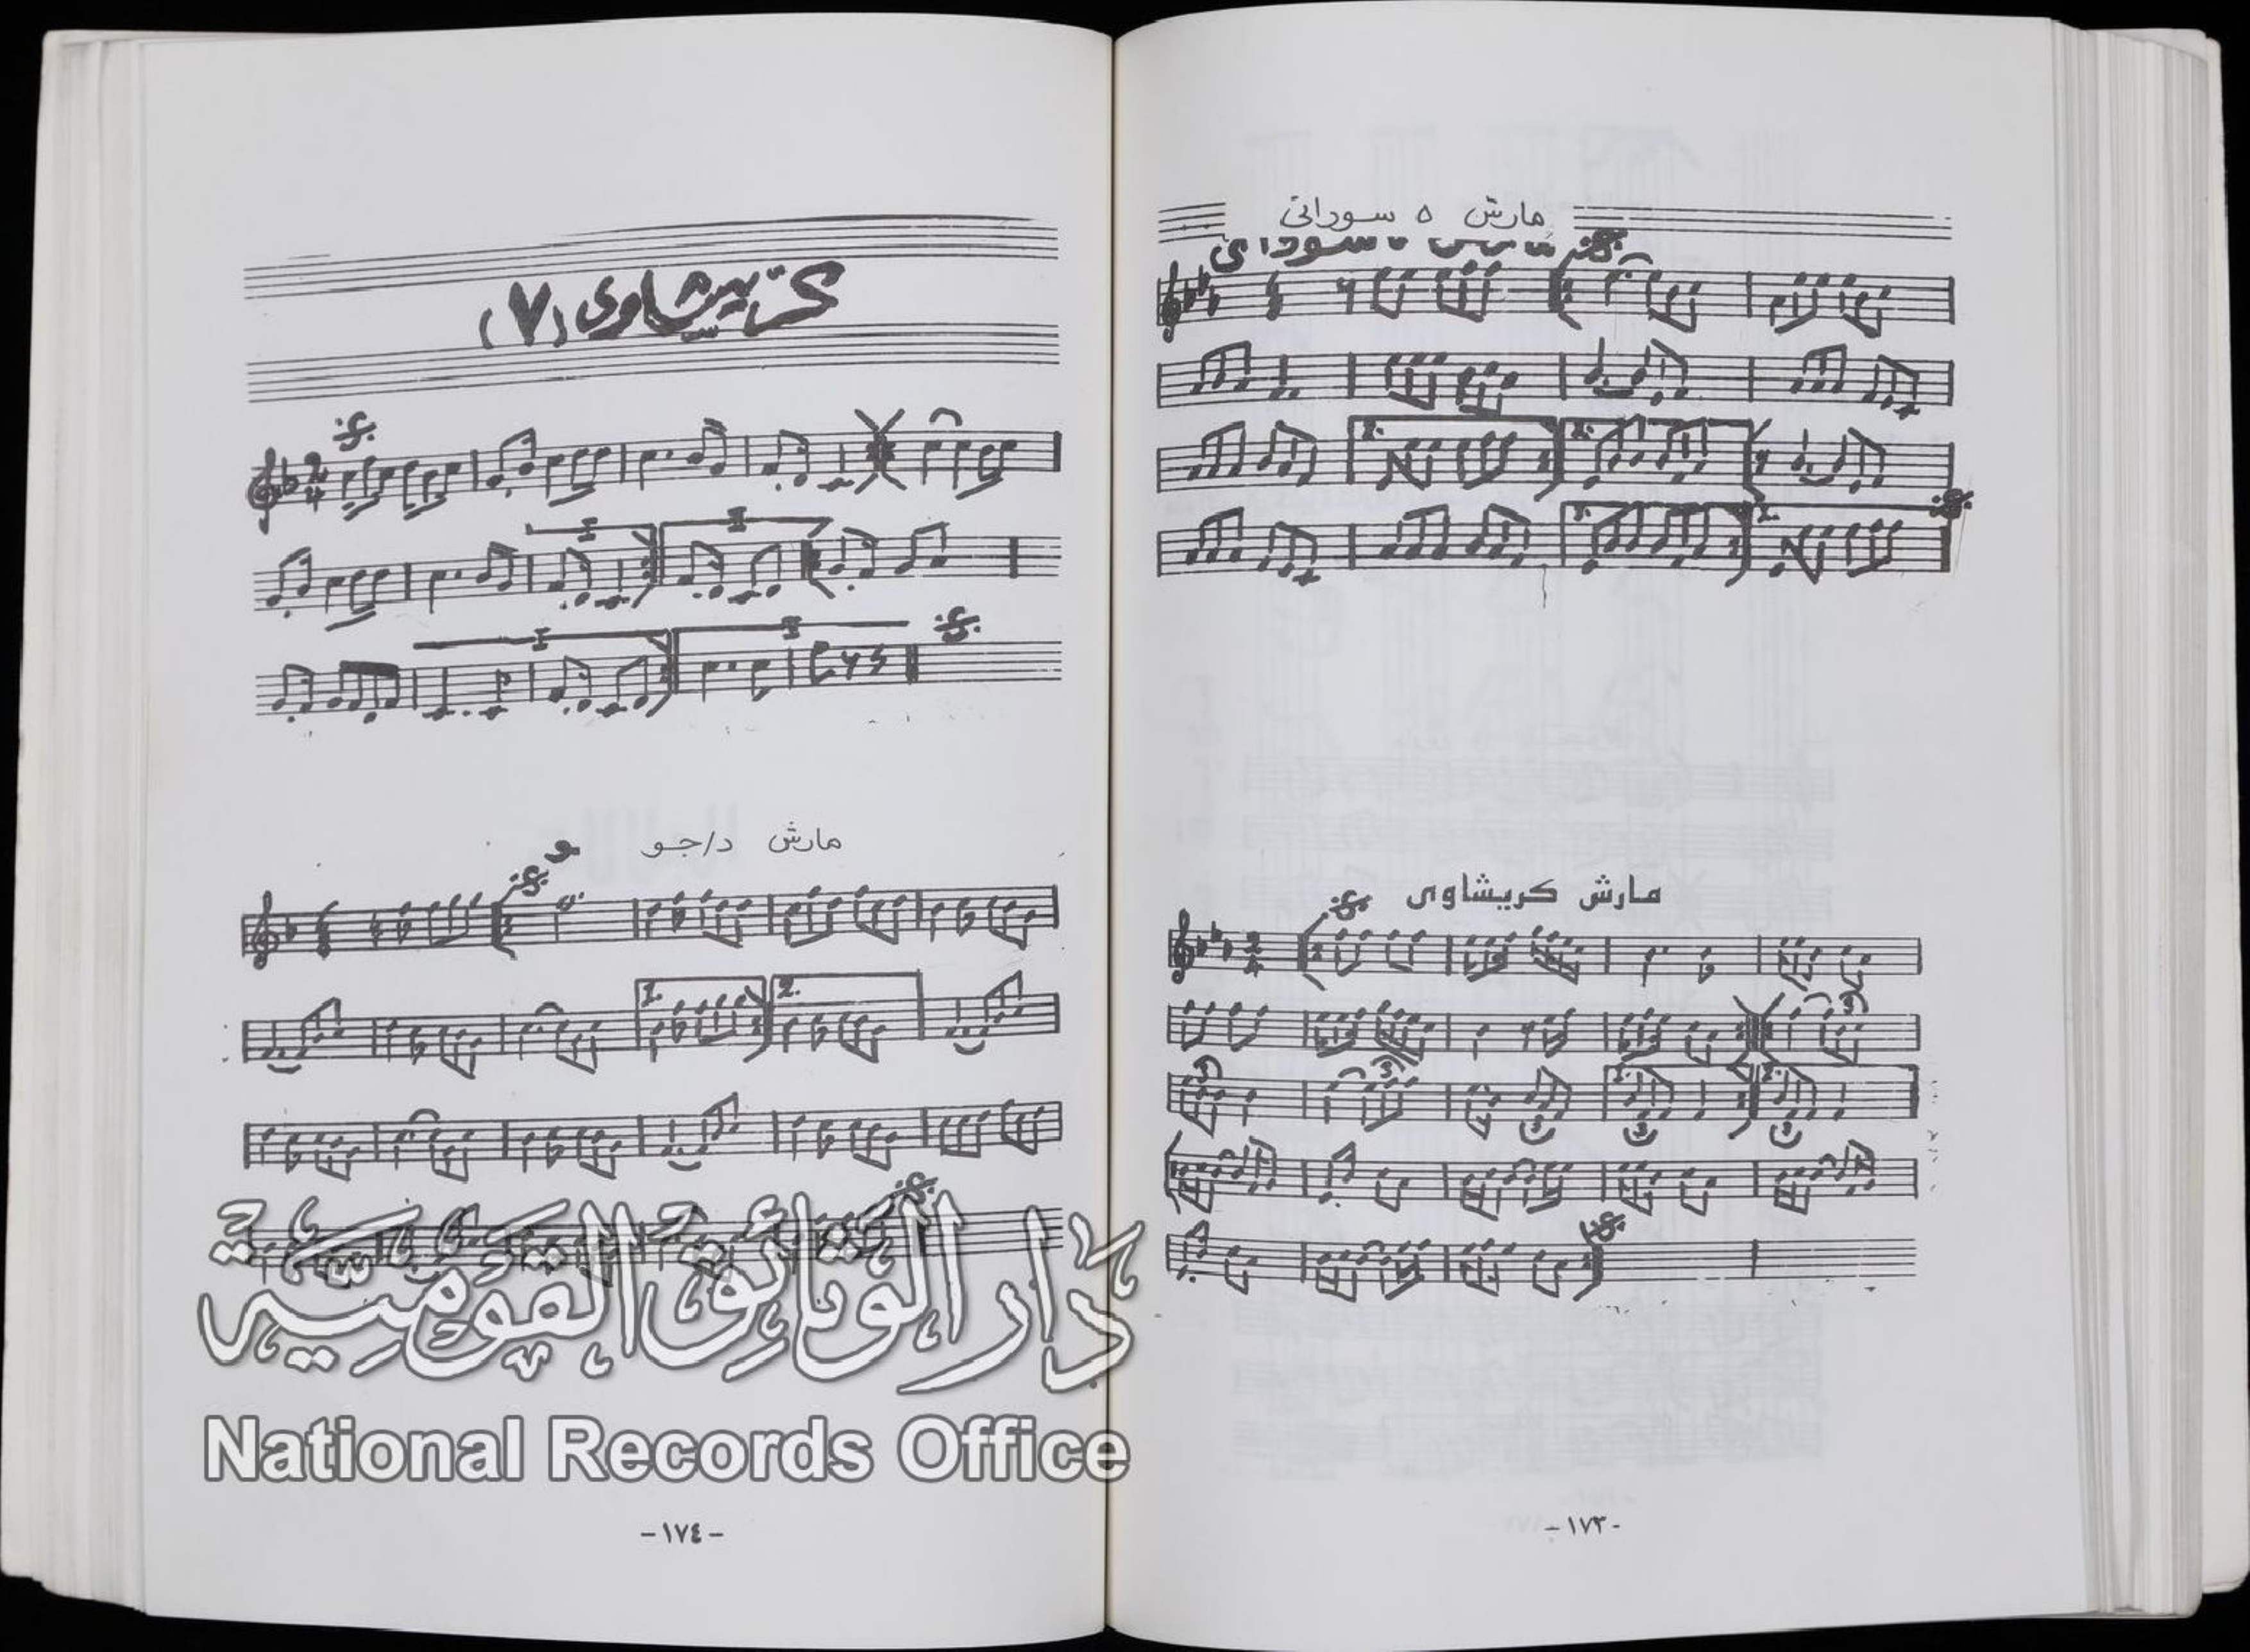 مارش ٥ سوداني
مارش كريشاوى
-١٧٣-
كريشاوى (٧)
مارش د/جو
دار الوثائق القومية
National Records Office
-١٧٤-